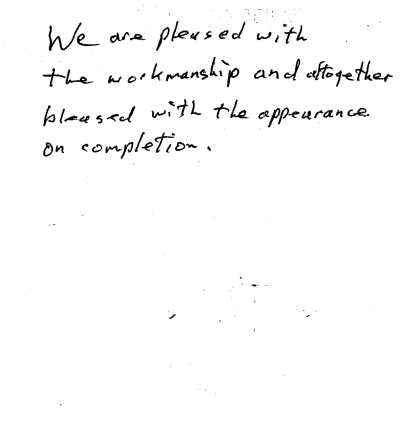 We are pleased with
the workmanship and altogether
pleased with the appearance
on completion.